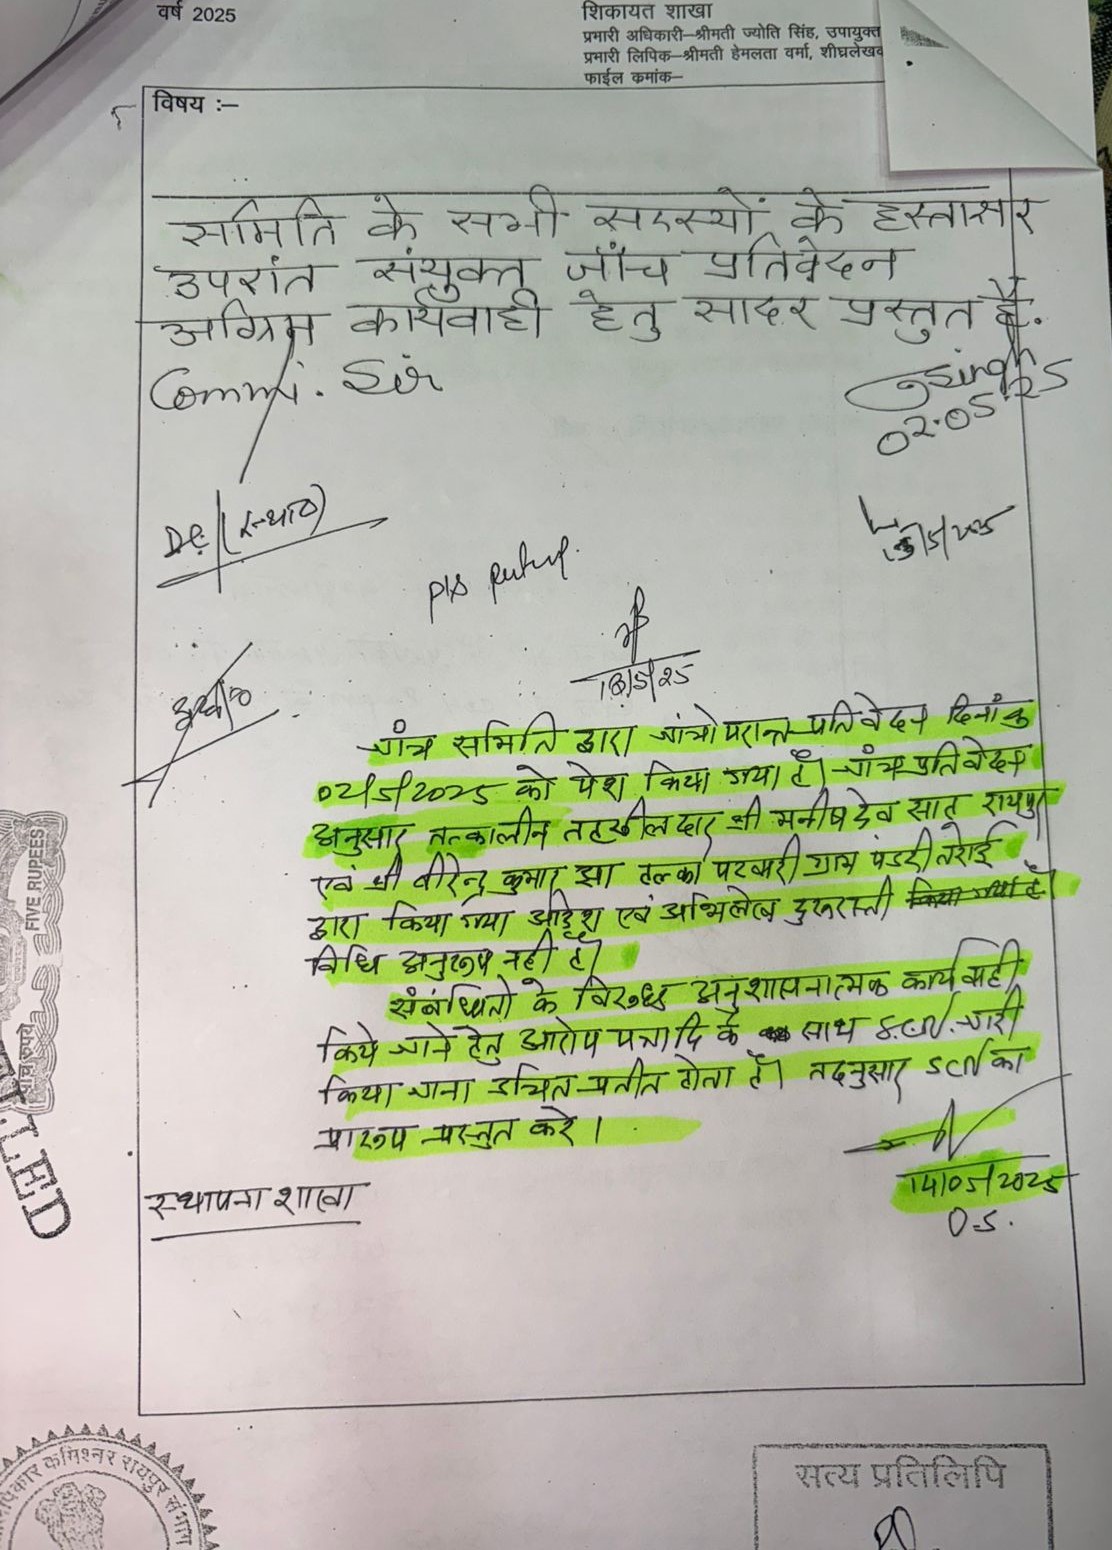 वर्ष 2025
शिकायत शाखा
प्रभारी अधिकारी–श्रीमती ज्योति सिंह, उपायुक्त
प्रभारी लिपिक–श्रीमती हेमलता वर्मा, शीघ्रलेखक
फाईल कमांक–
विषय :–
समिति के सभी सदस्यों के हस्ताक्षर
उपरांत संयुक्त जाँच प्रतिवेदन
अग्रिम कार्यवाही हेतु सादर प्रस्तुत है.
Commi. Sir
02.05.25
DC. (स्था०)
13/5/2025
pls
13/5/25
जांच समिति द्वारा जांचोपरान्त प्रतिवेदन दिनांक
02/5/2025 को पेश किया गया है। जांच प्रतिवेदन
अनुसार तत्कालीन तहसीलदार श्री मनीष देव साहू रायपुर
एवं श्री वीरेन्द्र कुमार झा हल्का पटवारी ग्राम पंडरीतराई
द्वारा किया गया आदेश एवं अभिलेख दुरूस्ती किया गया है
विधि अनुरूप नहीं है।
संबंधितों के विरूद्ध अनुशासनात्मक कार्यवाही
किये जाने हेतु आरोप पत्रादि के साथ S.C.N. जारी
किया जाना उचित प्रतीत होता है। तदनुसार SCN का
प्रारूप प्रस्तुत करे।
14/05/2025
O.S.
स्थापना शाखा
FIVE RUPEES
पाँच रुपये
कमिश्नर रायपुर संभाग
सत्य प्रतिलिपि